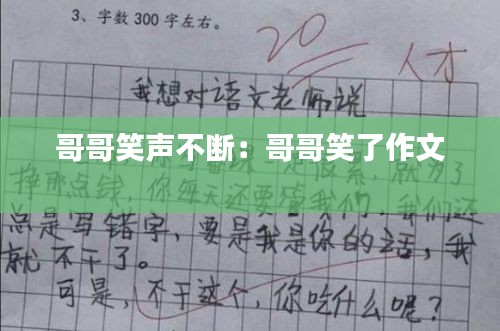 3、字数 300 字左右。
20
人才
我想对语文老师说
哥哥笑声不断：哥哥笑了作文
挣那点钱，你每天还要管我们，我们还
总是写错字，要是我是你的话，我
就不干了。
可是，不干这个，你吃什么呢？